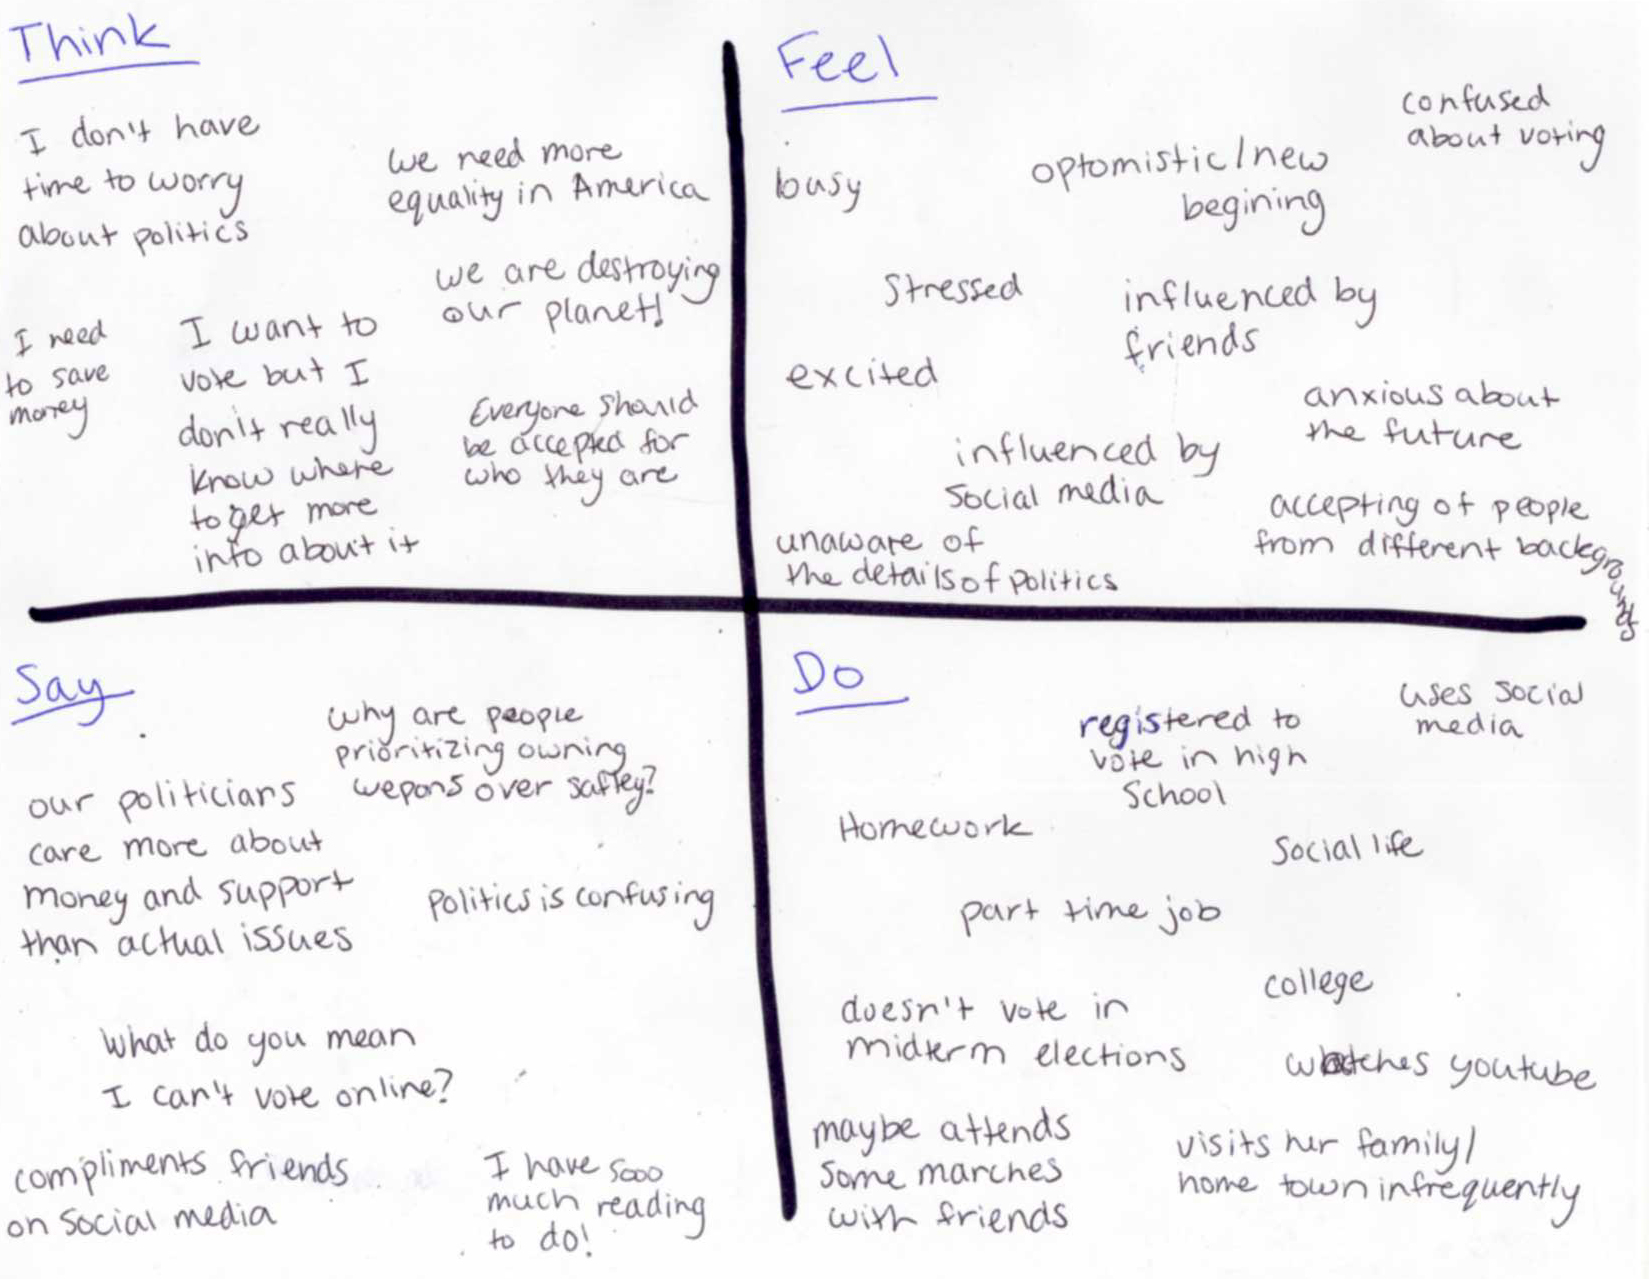 Think
I don't have
time to worry
about politics
we need more
equality in America
we are destroying
our planet!
I need
to save
money
I want to
vote but I
don't really
know where
to get more
info about it
Everyone should
be accepted for
who they are
Feel
busy
optomistic/new
begining
confused
about voting
Stressed
influenced by
friends
excited
anxious about
the future
influenced by
social media
accepting of people
from different backgrounds
unaware of
the details of politics
Say
why are people
prioritizing owning
wepons over saftey?
our politicians
care more about
money and support
than actual issues
politics is confusing
What do you mean
I can't vote online?
compliments friends
on social media
I have sooo
much reading
to do!
Do
registered to
vote in high
School
uses social
media
Homework
Social life
part time job
college
doesn't vote in
midterm elections
watches youtube
maybe attends
some marches
with friends
visits her family/
home town infrequently